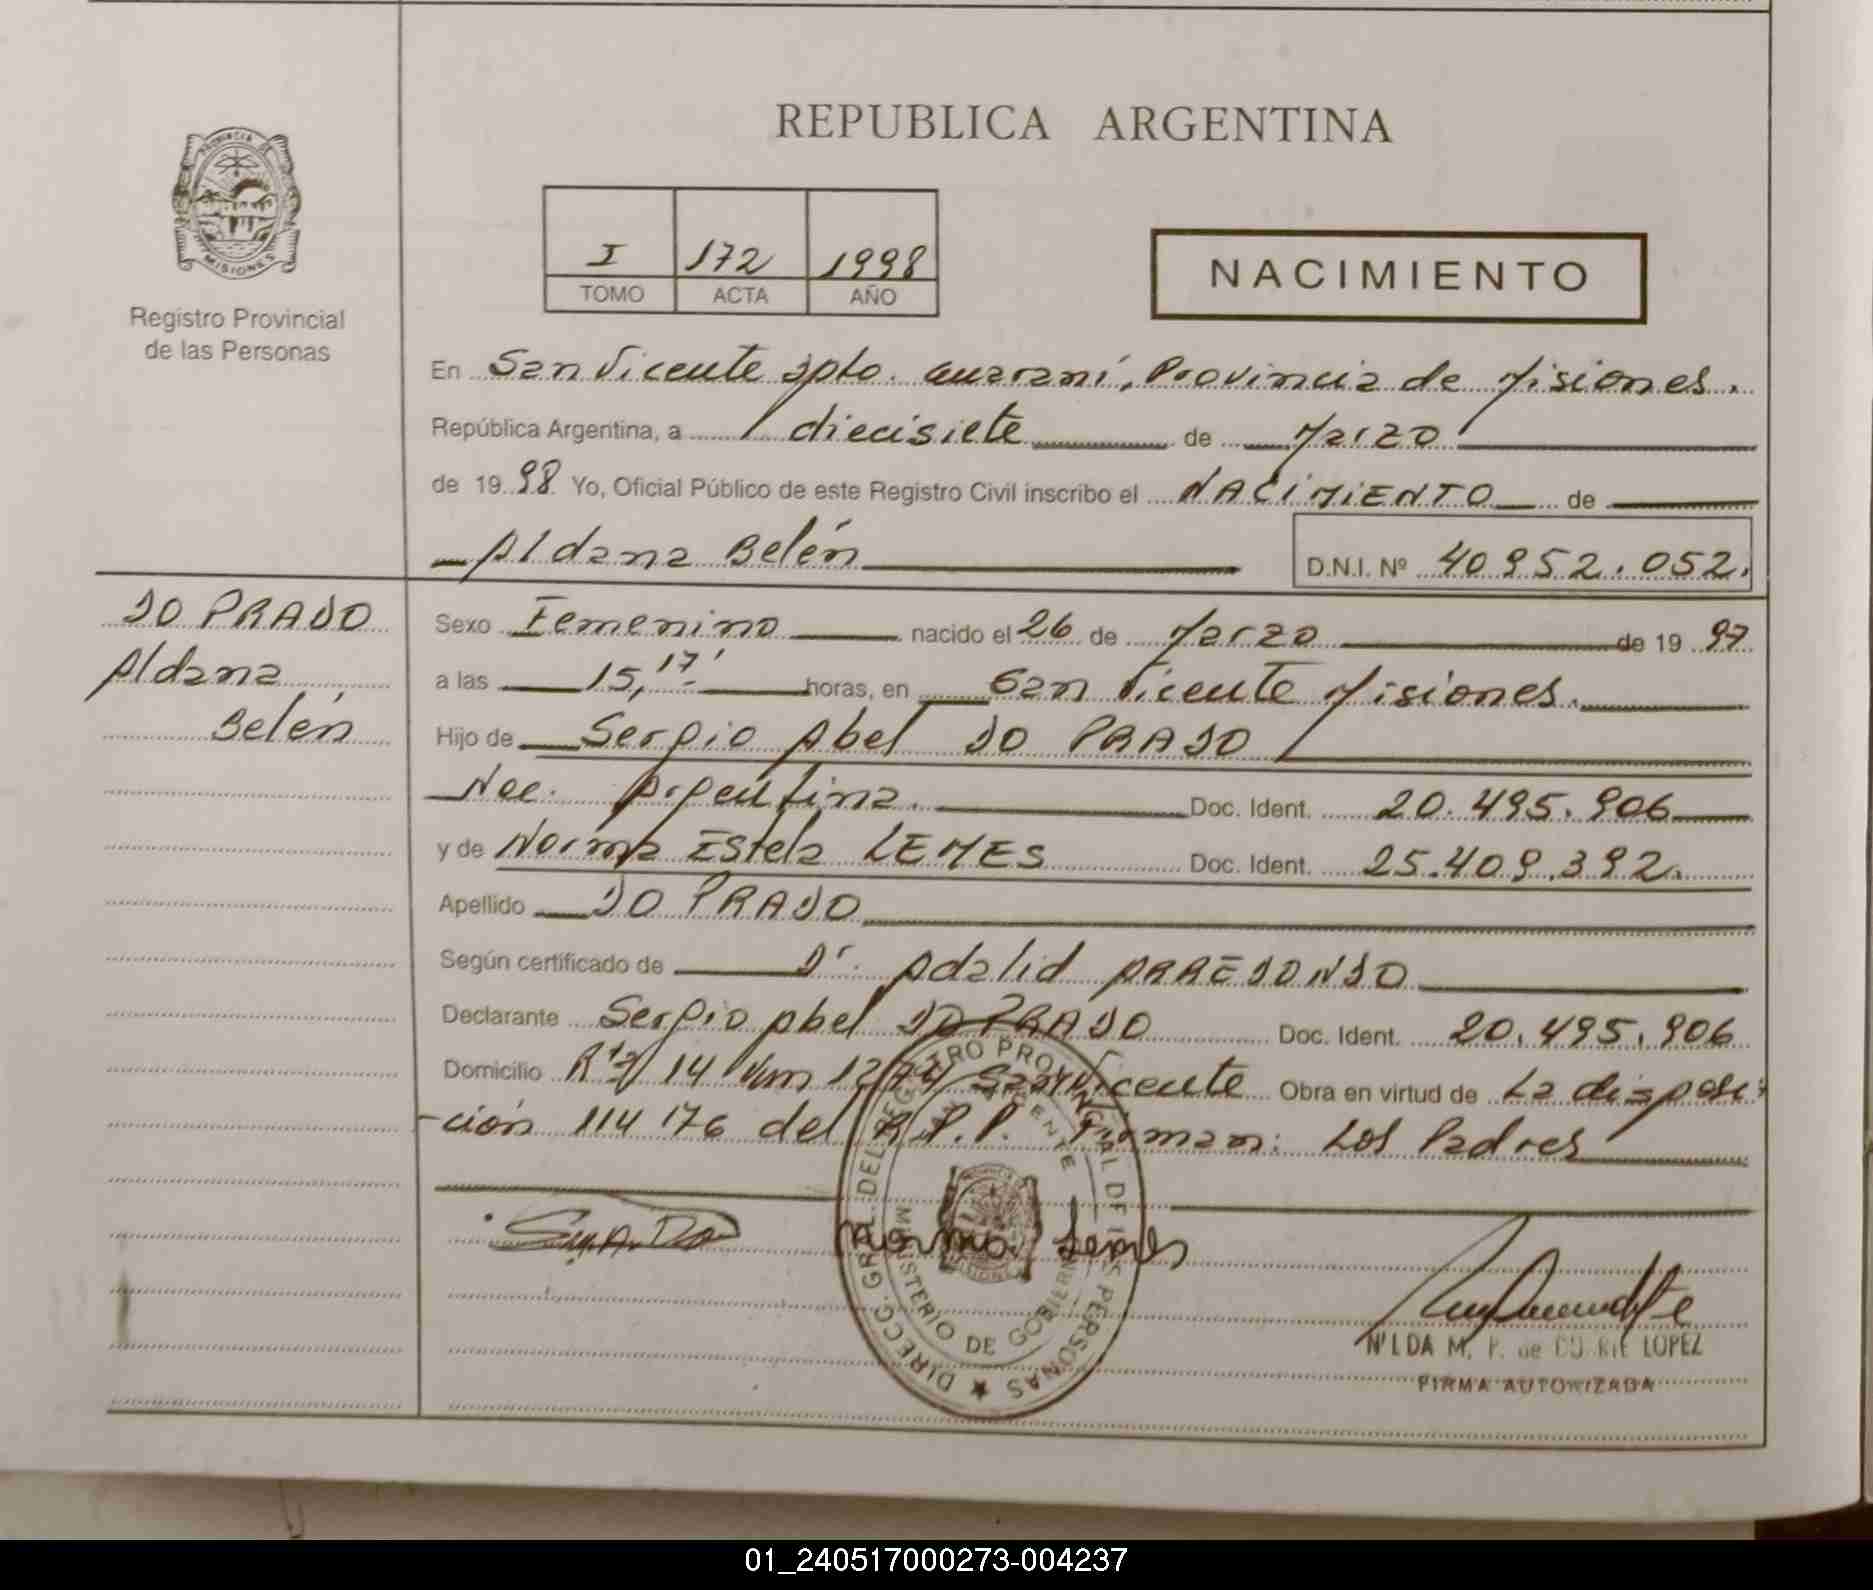 REPUBLICA ARGENTINA
PROVINCIA DE
MISIONES
Registro Provincial
de las Personas
I 172 1998
TOMO ACTA AÑO
NACIMIENTO
En San Vicente Dpto. Guaraní, Provincia de Misiones.
República Argentina, a diecisiete de Marzo
de 1998 Yo, Oficial Público de este Registro Civil inscribo el NACIMIENTO de
Aldana Belén
D.N.I. Nº 40952.052.
DO PRADO
Aldana
Belén
Sexo Femenino nacido el 26 de Marzo de 1997
a las 15,17' horas, en San Vicente Misiones.
Hijo de Sergio Abel DO PRADO
Nac. Argentina. Doc. Ident. 20.495.906
y de Norma Estela LEMES Doc. Ident. 25.409.392.
Apellido DO PRADO
Según certificado de Dr. Adalid ARREDONDO
Declarante Sergio Abel DO PRADO Doc. Ident. 20.495.906
Domicilio 14 Km San Vicente Obra en virtud de La disposi
-ción 114 176 del R.P.P. Firman: Los Padres
Norma Lemes
DIRECC. GRAL. DEL REGISTRO PROVINCIAL DE LAS PERSONAS
MINISTERIO DE GOBIERNO
SAN VICENTE
NILDA M. P. de LOPEZ
FIRMA AUTORIZADA
01_240517000273-004237